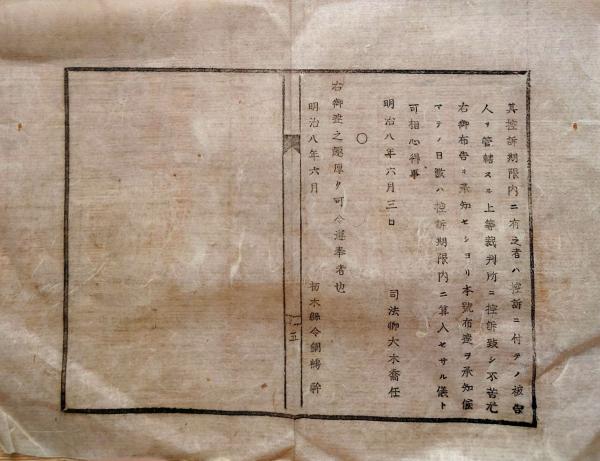 其控訴期限内ニ有之者ハ控訴ニ付テノ被告
人ヲ管轄スル上等裁判所ニ控訴致シ不苦尤
右御布告ヲ承知セシヨリ本號布達ヲ承知候
マテノ日數ハ控訴期限内ニ算入セサル儀ト
可相心得事
明治八年六月三日 司法卿大木喬任
○
右御達之趣厚ク可令遵奉者也
明治八年六月 栃木縣令鍋島幹
五